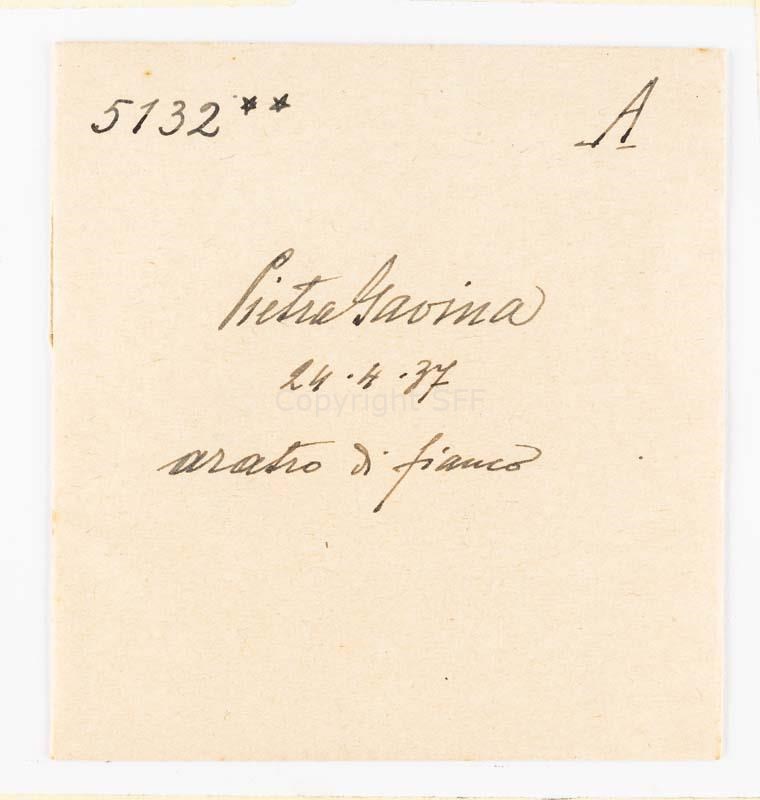 5132** A
Pietra Gavina
24.4.37
Copyright SFF
aratro di fianco